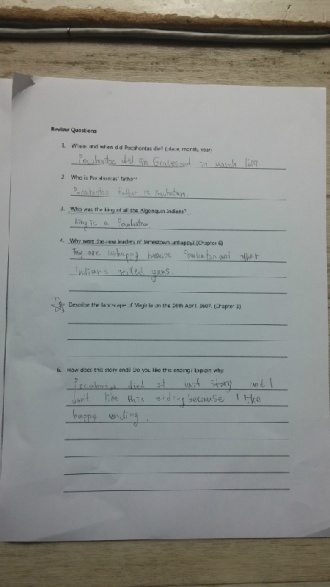 Review Questions
1. Where and when did Pocahontas die? (place, month, year)
Pocahontas did in Gravesend in
2. Who is Pocahontas' father?
Pocahontas father is
3. Who was the king of all the Algonquin Indians?
King is a
4. Why were the new leaders of Jamestown unhappy? (Chapter 6)
They are unhappy because and other
Indians
5. Describe the landscape of Virginia on the 26th April, 1607. (Chapter 2)
6. How does this story end? Do you like this ending? Explain why.
Pocahontas died at last story and I
don't like this ending because I like
happy ending.